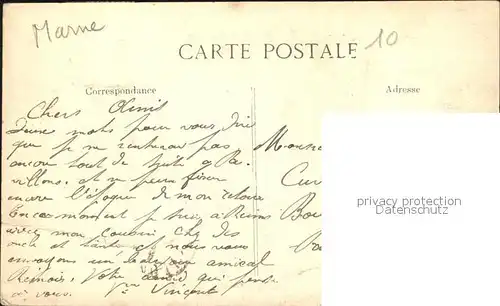 Marne
10
CARTE POSTALE
Correspondance
Adresse
Chers Amis
Deux mots pour vous dire
que je ne rentrerai pas
encore tout de suite à Pa
villons. et ne peux fixer
encore l'époque de mon retour
En ce moment je suis à Reims
avec mon cousin chez des
oncle et tante et nous vous
envoyons un bonjour amical
Rémois. Votre qui pense
à vous. Vincent
Monsie
Cur
Bou
privacy protection
Datenschutz